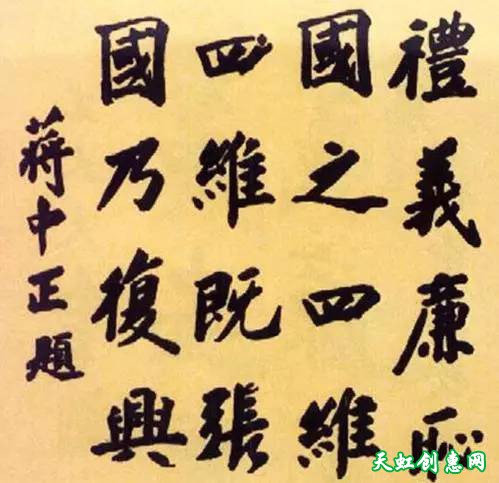 禮義廉恥
國之四維
四維既張
國乃復興
蔣中正題
天虹创惠网